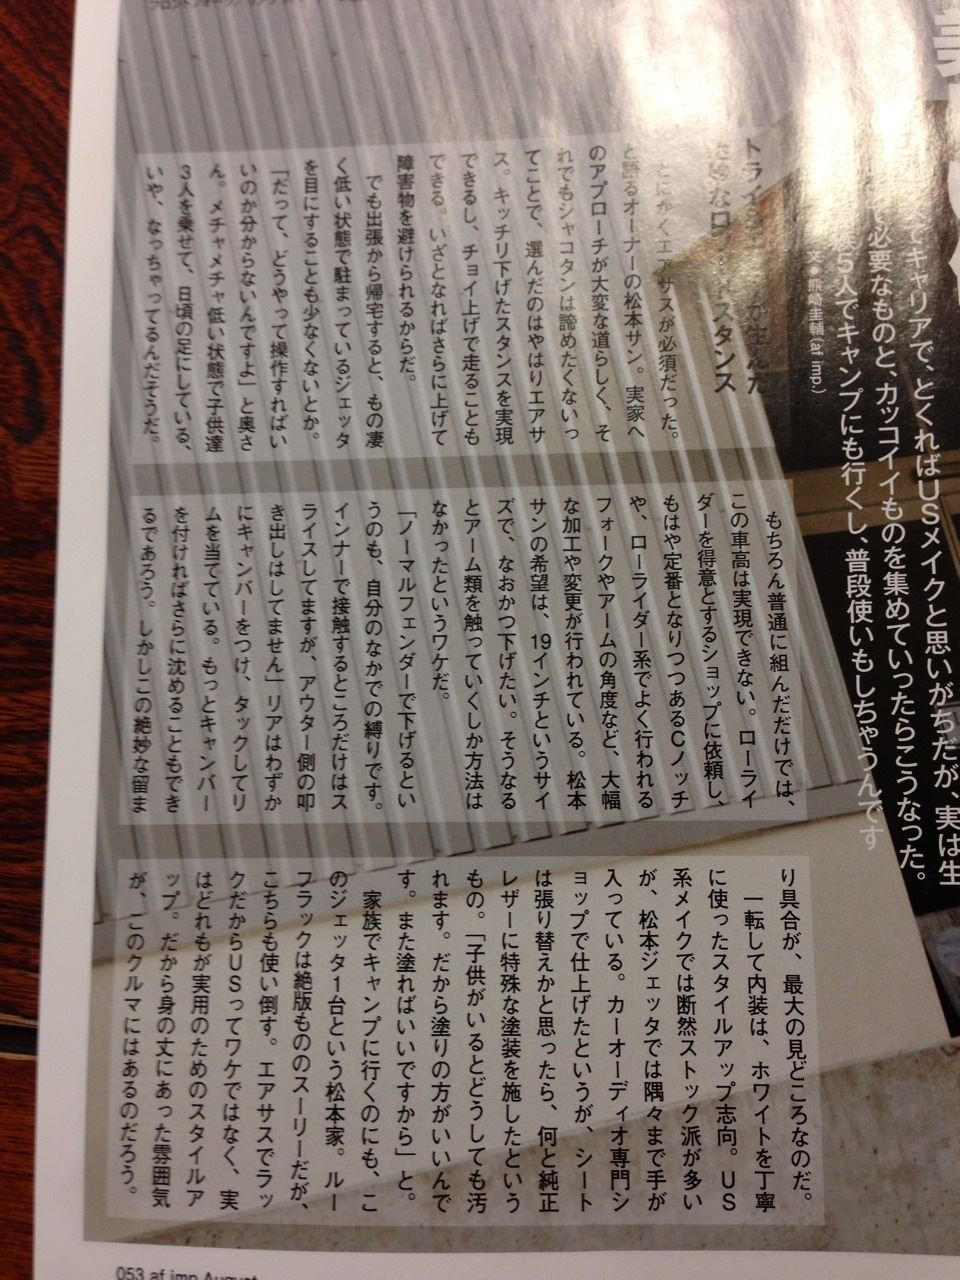 でキャリアで、とくればUSメイクと思いがちだが、実は生
必要なものと、カッコイイものを集めていったらこうなった。
5人でキャンプにも行くし、普段使いもしちゃうんです
文●熊崎圭輔(af imp.)
が生んだ
スタンス
とにかくエアサスが必須だった。
と語るオーナーの松本サン。実家へ
のアプローチが大変な道らしく、そ
れでもシャコタンは諦めたくないっ
てことで、選んだのはやはりエアサ
ス。キッチリ下げたスタンスを実現
できるし、チョイ上げで走ることも
できる。いざとなればさらに上げて
障害物を避けられるからだ。
でも出張から帰宅すると、もの凄
く低い状態で駐まっているジェッタ
を目にすることも少なくないとか。
「だって、どうやって操作すればい
いのか分からないんですよ」と奥さ
ん。メチャメチャ低い状態で子供達
3人を乗せて、日頃の足にしている、
いや、なっちゃってるんだそうだ。
もちろん普通に組んだだけでは、
この車高は実現できない。ローライ
ダーを得意とするショップに依頼し、
もはや定番となりつつあるCノッチ
や、ローライダー系でよく行われる
フォークやアームの角度など、大幅
な加工や変更が行われている。松本
サンの希望は、19インチというサイ
ズで、なおかつ下げたい。そうなる
とアーム類を触っていくしか方法は
なかったというワケだ。
「ノーマルフェンダーで下げるとい
うのも、自分のなかでの縛りです。
インナーで接触するところだけはス
ライスしてますが、アウター側の叩
き出しはしてません」リアはわずか
にキャンバーをつけ、タックしてリ
ムを当てている。もっとキャンバー
を付ければさらに沈めることもでき
るであろう。しかしこの絶妙な留ま
り具合が、最大の見どころなのだ。
一転して内装は、ホワイトを丁寧
に使ったスタイルアップ志向。US
系メイクでは断然ストック派が多い
が、松本ジェッタでは隅々まで手が
入っている。カーオーディオ専門シ
ョップで仕上げたというが、シート
は張り替えかと思ったら、何と純正
レザーに特殊な塗装を施したという
もの。「子供がいるとどうしても汚
れます。だから塗りの方がいいんで
す。また塗ればいいですから」と。
家族でキャンプに行くのにも、こ
のジェッタ1台という松本家。ルー
フラックは絶版もののスーリーだが、
こちらも使い倒す。エアサスでラッ
クだからUSってワケではなく、実
はどれもが実用のためのスタイルア
ップ。だから身の丈にあった雰囲気
が、このクルマにはあるのだろう。
053 af imp August